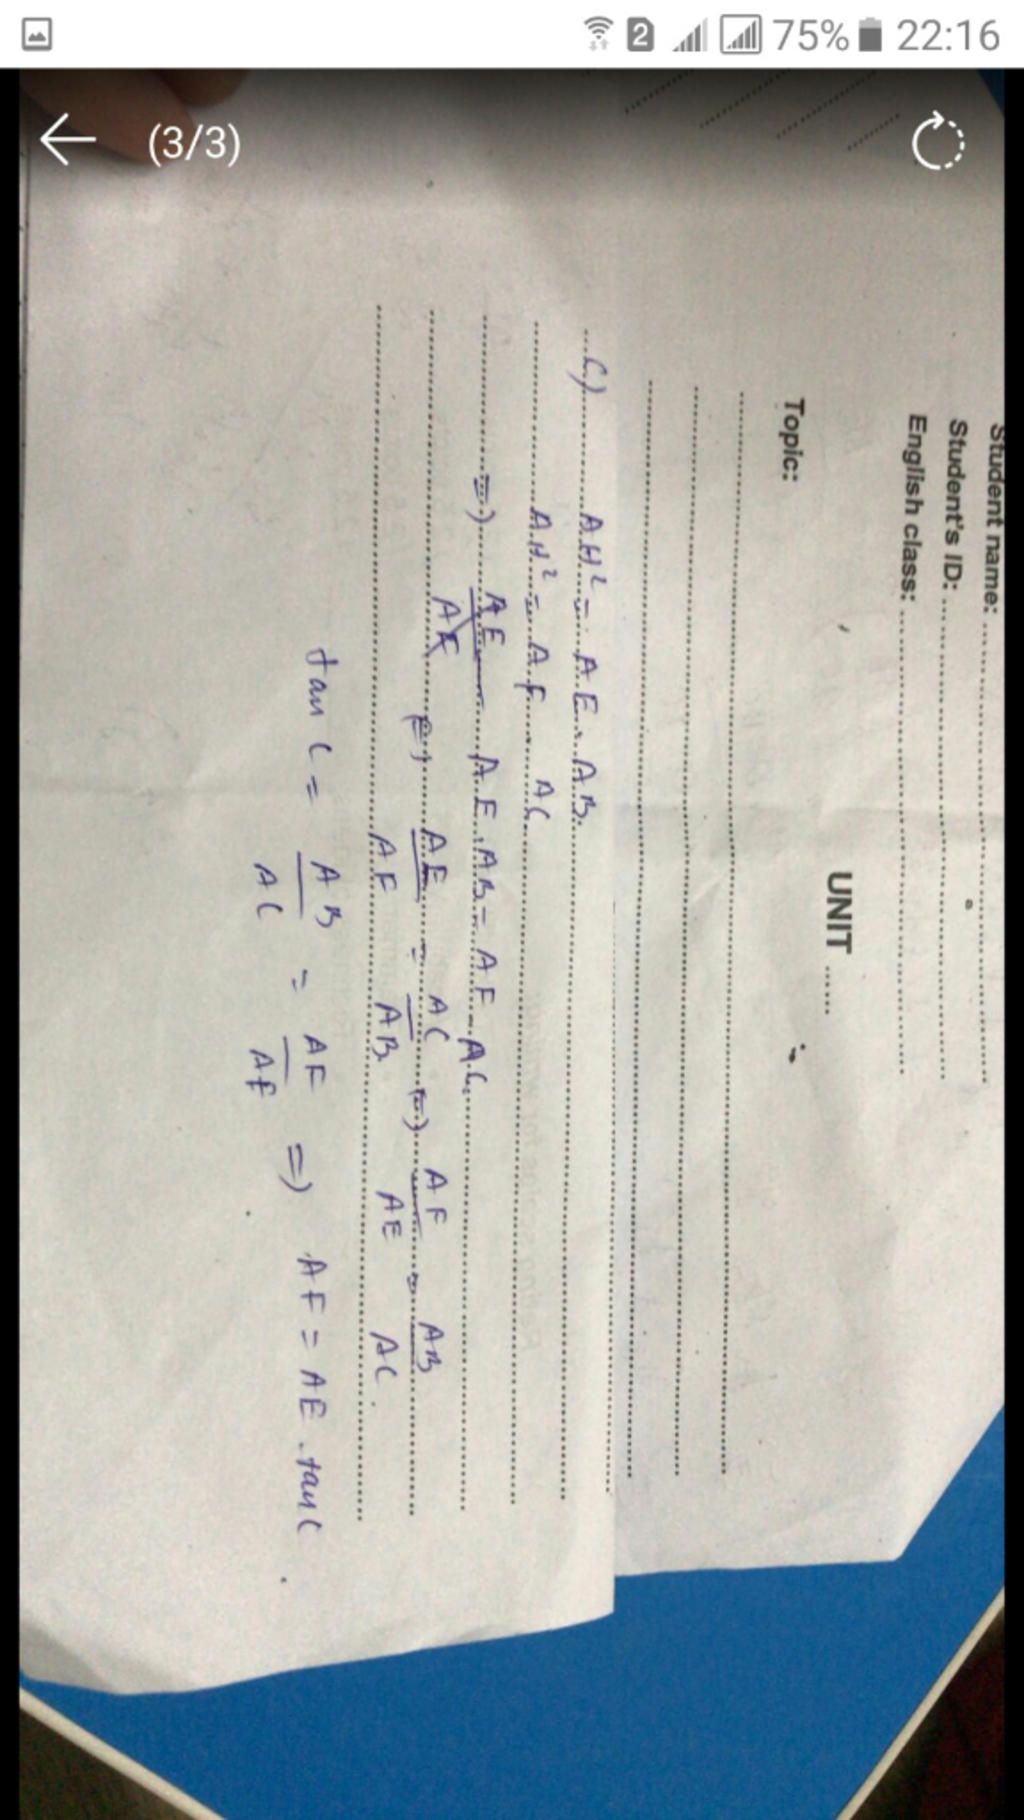 2 75% 22:16
(3/3)
Student name: ............
Student's ID: ............
English class: ............
UNIT ......
Topic:
c) AH² = AE . AB.
AH² = AF AC
=> AE AE . AB = AF . AC.
AE
<=> AE/AF = AC/AB <=> AF/AE = AB/AC.
tan C = AB/AC = AF/AE => AF = AE . tan C